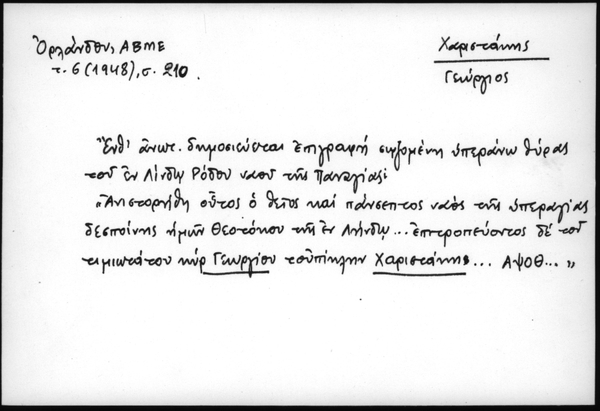 Ὀρλάνδου, ΑΒΜΕ
τ. 6 (1948), σ. 210.
Χαριστάκης
Γεώργιος
Ἔνθ' ἄνωτ. δημοσιεύεται ἐπιγραφή σῳζομένη ὑπεράνω θύρας
τοῦ ἐν Λίνδῳ Ρόδου ναοῦ τῆς Παναγίας:
"Ἀνιστορήθη οὗτος ὁ θεῖος καί πάνσεπτος ναός τῆς ὑπεραγίας
δεσποίνης ἡμῶν Θεοτόκου τῆς ἐν Λήνδῳ... ἐπιτροπεύοντος δέ τοῦ
τιμιωτάτου κύρ Γεωργίου τοὐπίκλην Χαριστάκης... ΑΨΟΘ..."